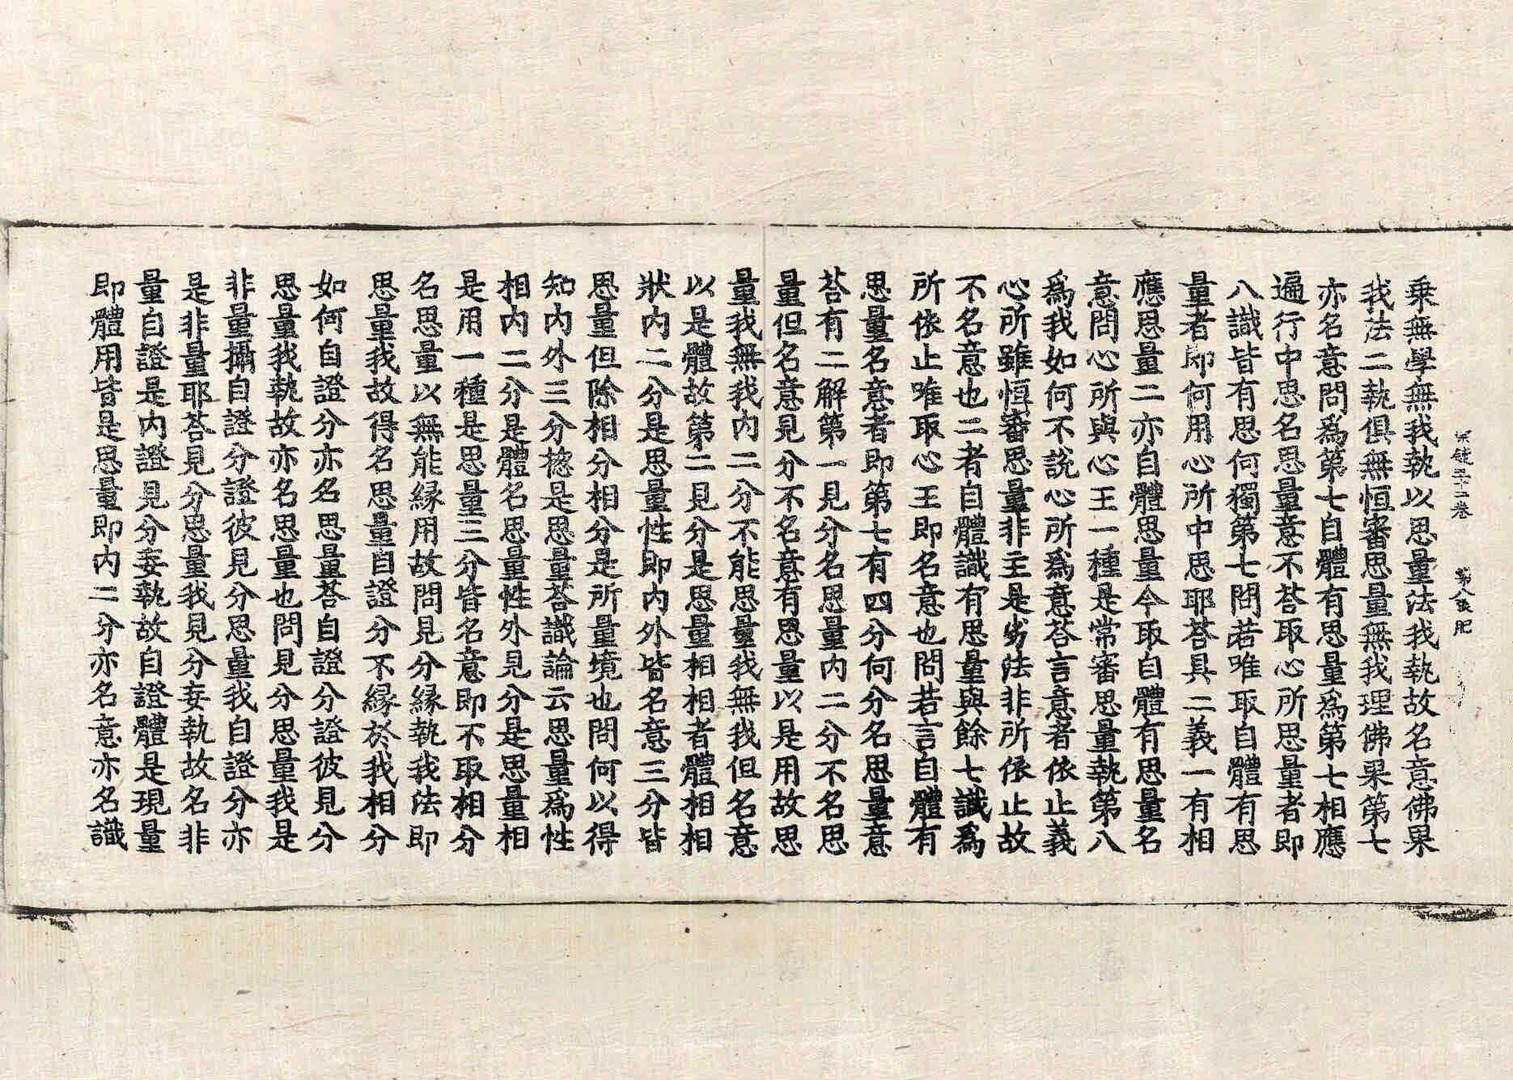 宗鏡五十二卷 第八張 肥
乗無學無我執以思量法我執故名意佛果
我法二執俱無恒審思量無我理佛果第七
亦名意問爲第七自體有思量爲第七相應
遍行中思名思量意不荅取心所思量者即
八識皆有思何獨第七問若唯取自體有思
量者即何用心所中思耶荅具二義一有相
應思量二亦自體思量今取自體有思量名
意問心所與心王一種是常審思量執第八
爲我如何不說心所爲意荅言意者依止義
心所雖恒審思量非主是劣法非所依止故
不名意也二者自體識有思量與餘七識爲
所依止唯取心王即名意也問若言自體有
思量名意者即第七有四分何分名思量意
荅有二解第一見分名思量内二分不名思
量但名意見分不名意有思量以是用故思
量我無我内二分不能思量我無我但名意
以是體故第二見分是思量相相者體相相
狀内二分是思量性即内外皆名意三分皆
思量但除相分相分是所量境也問何以得
知内外三分揔是思量荅識論云思量爲性
相内二分是體名思量性外見分是思量相
是用一種是思量三分皆名意即不取相分
名思量以無能縁用故問見分縁執我法即
思量我故得名思量自證分不縁於我相分
如何自證分亦名思量荅自證分證彼見分
思量我執故亦名思量也問見分思量我是
非量攝自證分證彼見分思量我自證分亦
是非量耶荅見分思量我見分妄執故名非
量自證是内證見分妄執故自證體是現量
即體用皆是思量即内二分亦名意亦名識